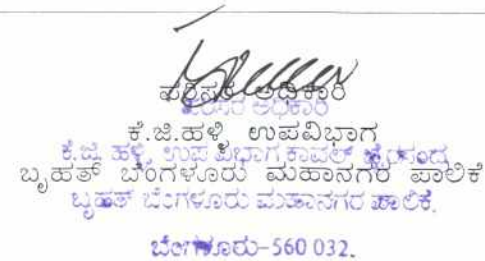 ಪರಿಸರ ಅಧಿಕಾರಿ
ಪರಿಸರ ಅಧಿಕಾರಿ
ಕೆ.ಜಿ.ಹಳ್ಳಿ ಉಪವಿಭಾಗ
ಕೆ.ಜಿ. ಹಳ್ಳಿ ಉಪ ವಿಭಾಗ, ಕಾವಲ್ ಬೈರಸಂದ್ರ
ಬೃಹತ್ ಬೆಂಗಳೂರು ಮಹಾನಗರ ಪಾಲಿಕೆ
ಬೃಹತ್ ಬೆಂಗಳೂರು ಮಹಾನಗರ ಪಾಲಿಕೆ.
ಬೆಂಗಳೂರು-560 032.